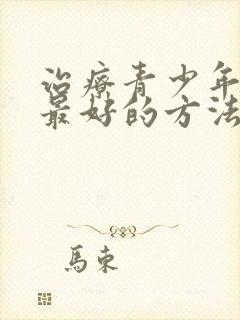 治療青少年
最好的方法
馬東